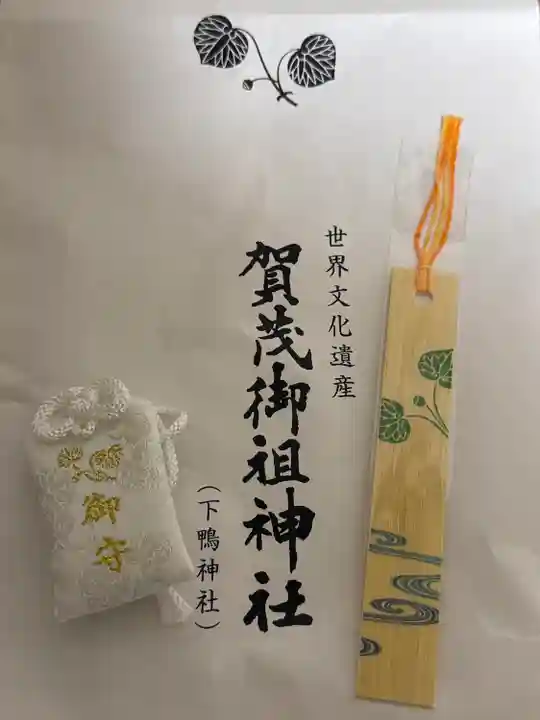 世界文化遺産
賀茂御祖神社
（下鴨神社）
御守